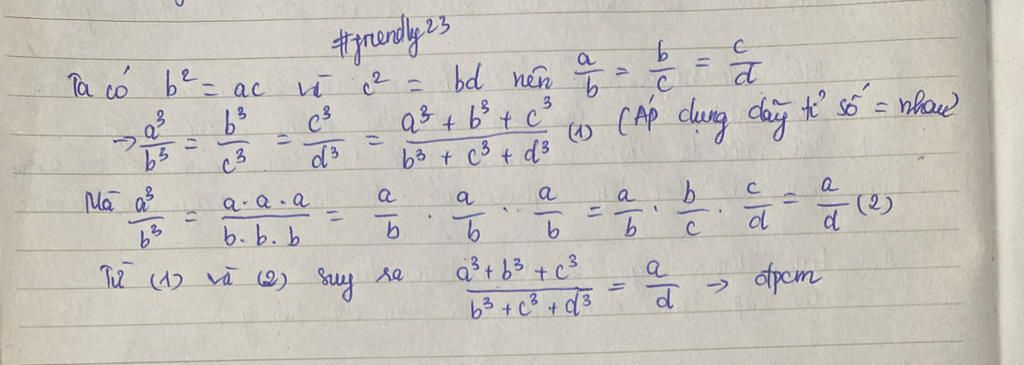 #friendly23
Ta có b² = ac vì c² = bd nên a/b = b/c = c/d
→ a³/b³ = b³/c³ = c³/d³ = (a³ + b³ + c³)/(b³ + c³ + d³) (1) (Áp dụng dãy tỉ số = nhau)
Mà a³/b³ = (a.a.a)/(b.b.b) = a/b . a/b . a/b = a/b . b/c . c/d = a/d (2)
Từ (1) và (2) suy ra (a³ + b³ + c³)/(b³ + c³ + d³) = a/d → đpcm